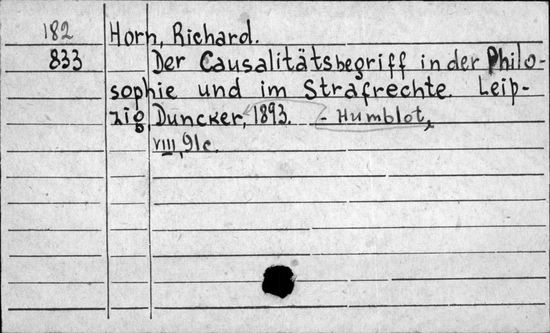 182 Horn, Richard.
833 Der Causalitätsbegriff in der Philo-
sophie und im Strafrechte. Leip-
zig, Duncker, 1893. - Humblot,
VIII, 91c.